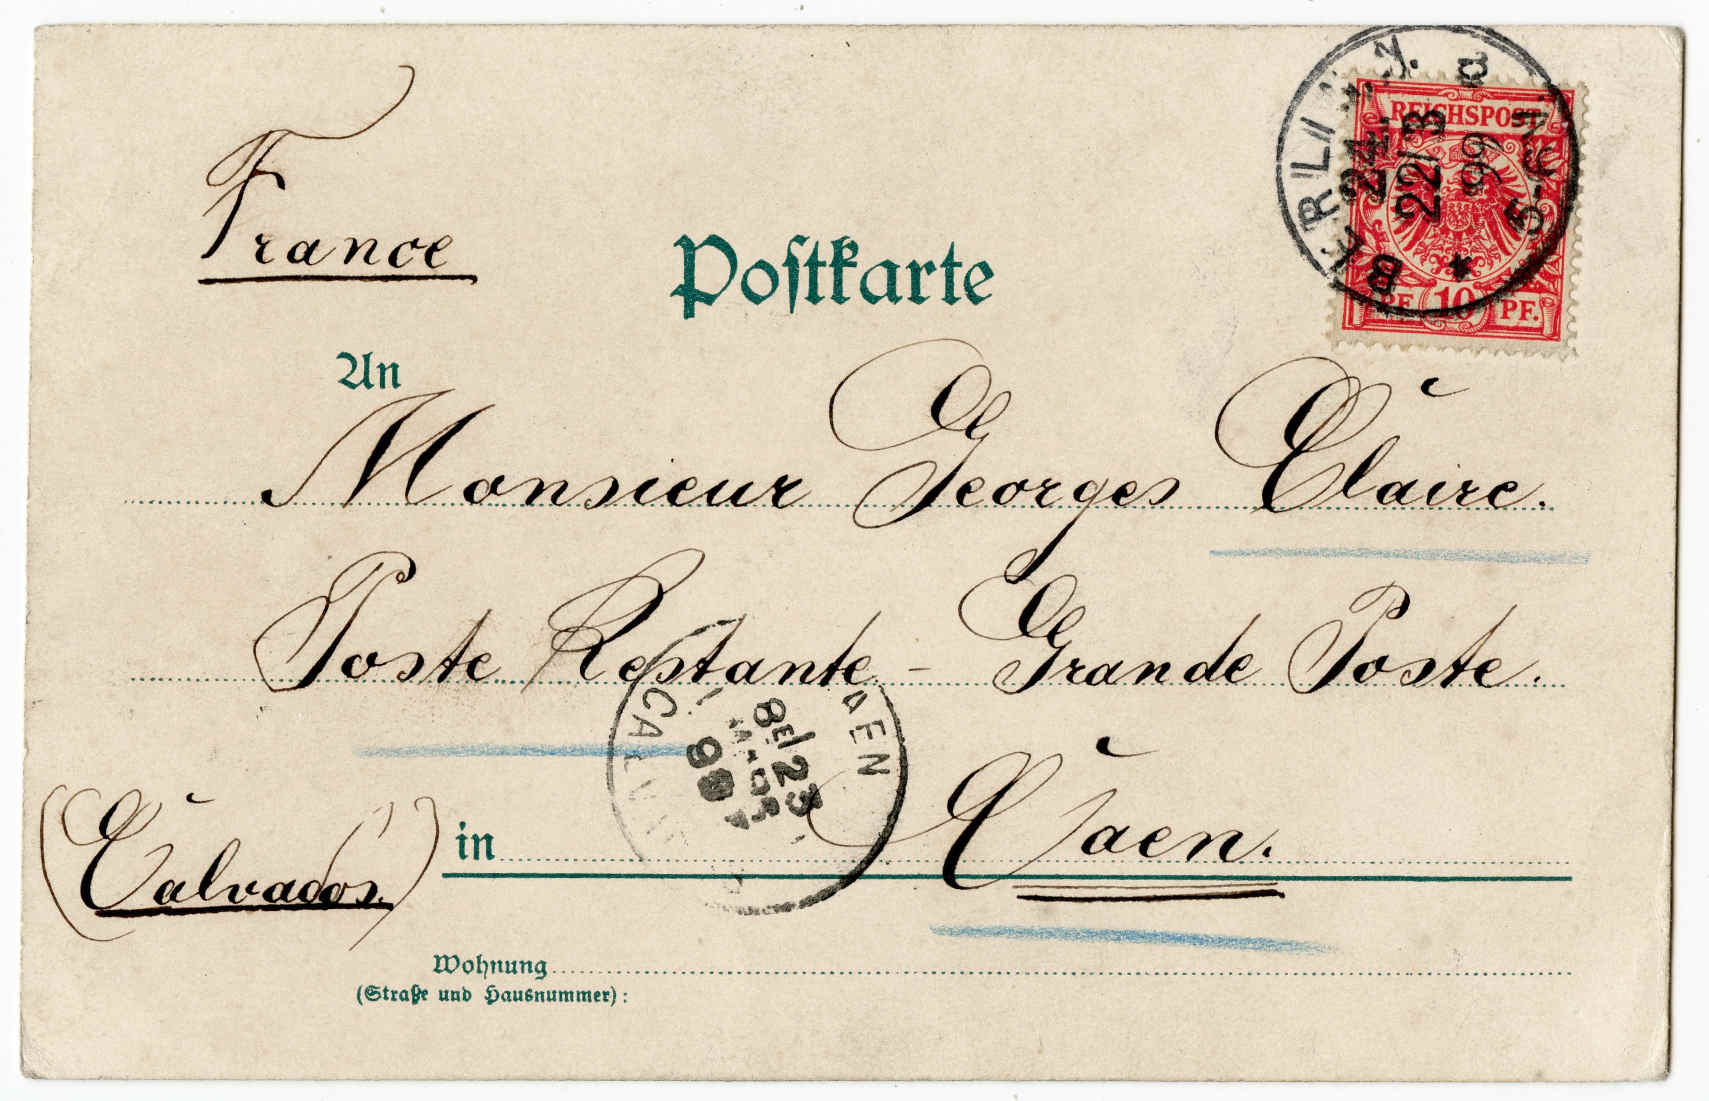 France
Postkarte
REICHSPOST
PF. 10 PF.
BERLIN
24.
22/3
99
An
Monsieur Georges Claire.
Poste Restante - Grande Poste.
CAEN
8E/23
MARS
99
in Caen.
(Calvados.)
Wohnung
(Straße und Hausnummer):